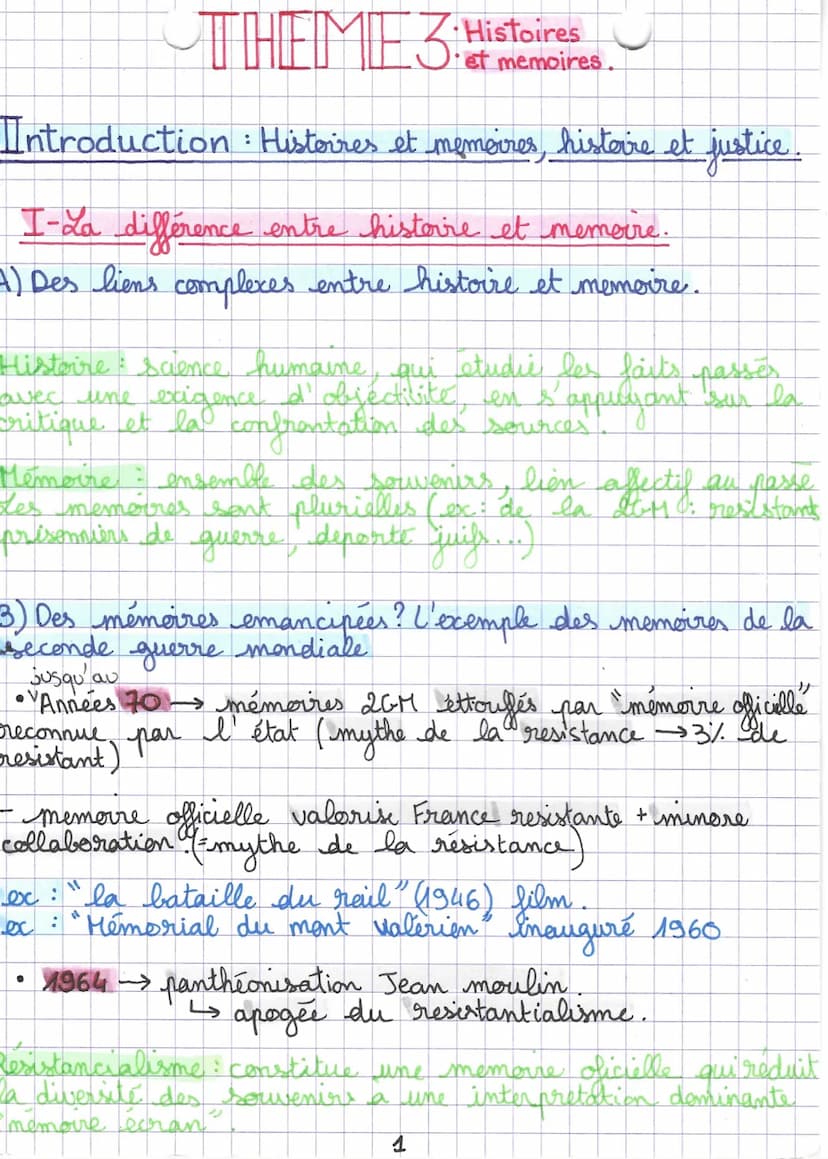 THEME 3 : Histoires
et memoires.
Introduction : Histoires et memoires, histoire et justice.
I - La différence entre histoire et memoire.
A) Des liens complexes entre histoire et memoire.
Histoire : science humaine, qui étudie les faits passés
avec une exigence d'objéctilité, en s'appuyant sur la
critique et la confrontation des sources.
Mémoire : ensemble des souvenirs, lien affectif au passé
Les memoires sont plurielles (ex : de la 2GM : resistant
prisonniers de guerre, deporté juifs...)
B) Des mémoires emancipées ? L'exemple des memoires de la
seconde guerre mondiale
jusqu'au
• Années 70 → mémoires 2GM éttouffés par "mémoire officielle"
reconnue par l'état (mythe de la resistance → 3% de
resistant)
- memoire officielle valorise France resistante + minore
collaboration. (= mythe de la résistance)
ex : "la bataille du reil" (1946) film.
ex : "Mémorial du mont valérien" inauguré 1960
• 1964 → panthéonisation Jean moulin.
↳ apogée du resistantialisme.
Résistancialisme : constitue une memoire oficielle qui réduit
la diversité des souvenirs a une interpretation dominante
"mémoire écran".
1